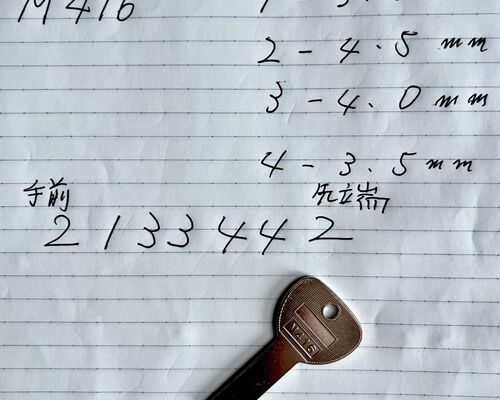 M416
2-4.5mm
3-4.0mm
4-3.5mm
手前 先端
2133442
M416